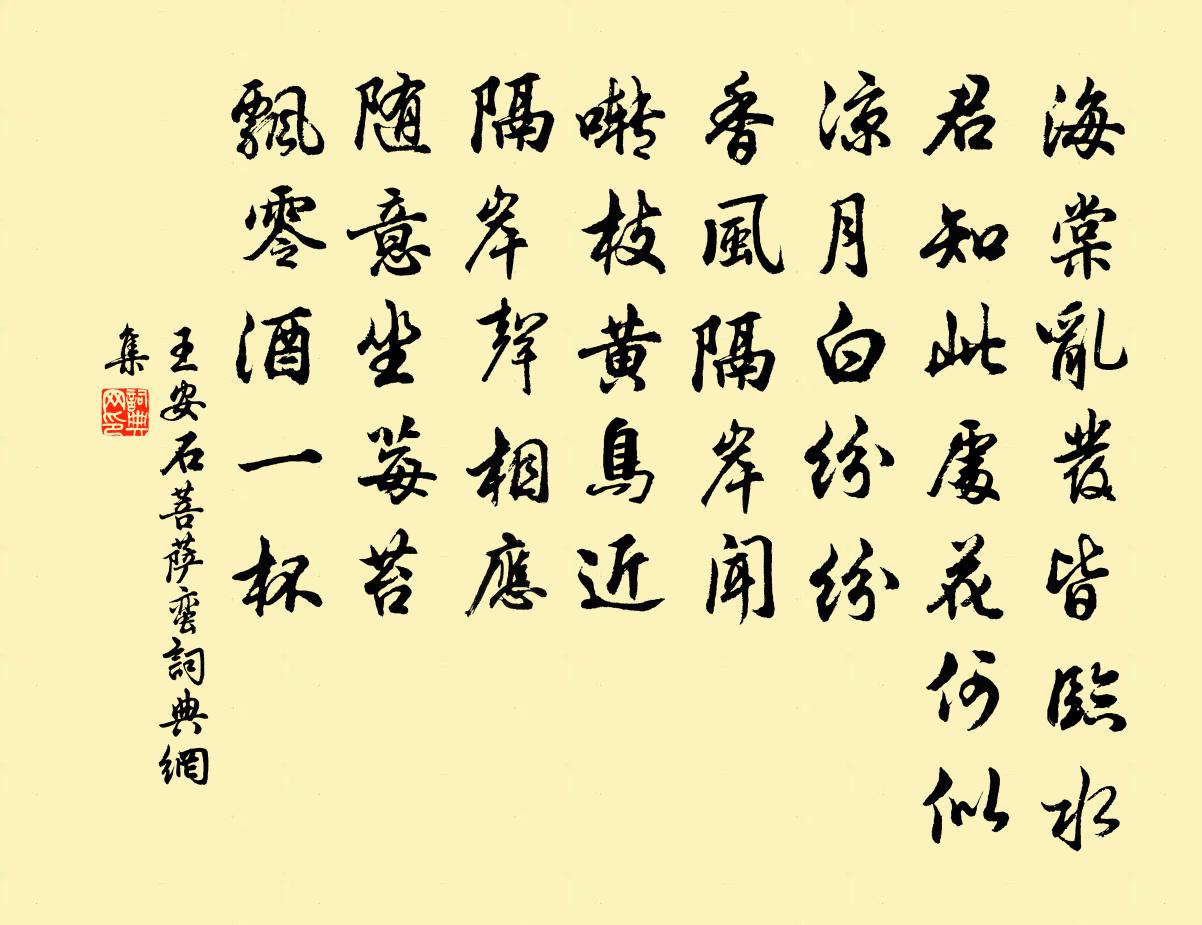 海棠亂發皆臨水
君知此處花何似
涼月白紛紛
香風隔岸聞
囀枝黃鳥近
隔岸聲相應
随意坐莓苔
飄零酒一杯
王安石菩萨蛮詞典網
集
詞典网印